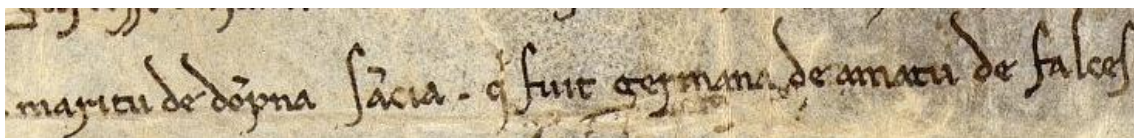 . maritu de dõpna sãcia . q̇ fuit germana de amatu de falces